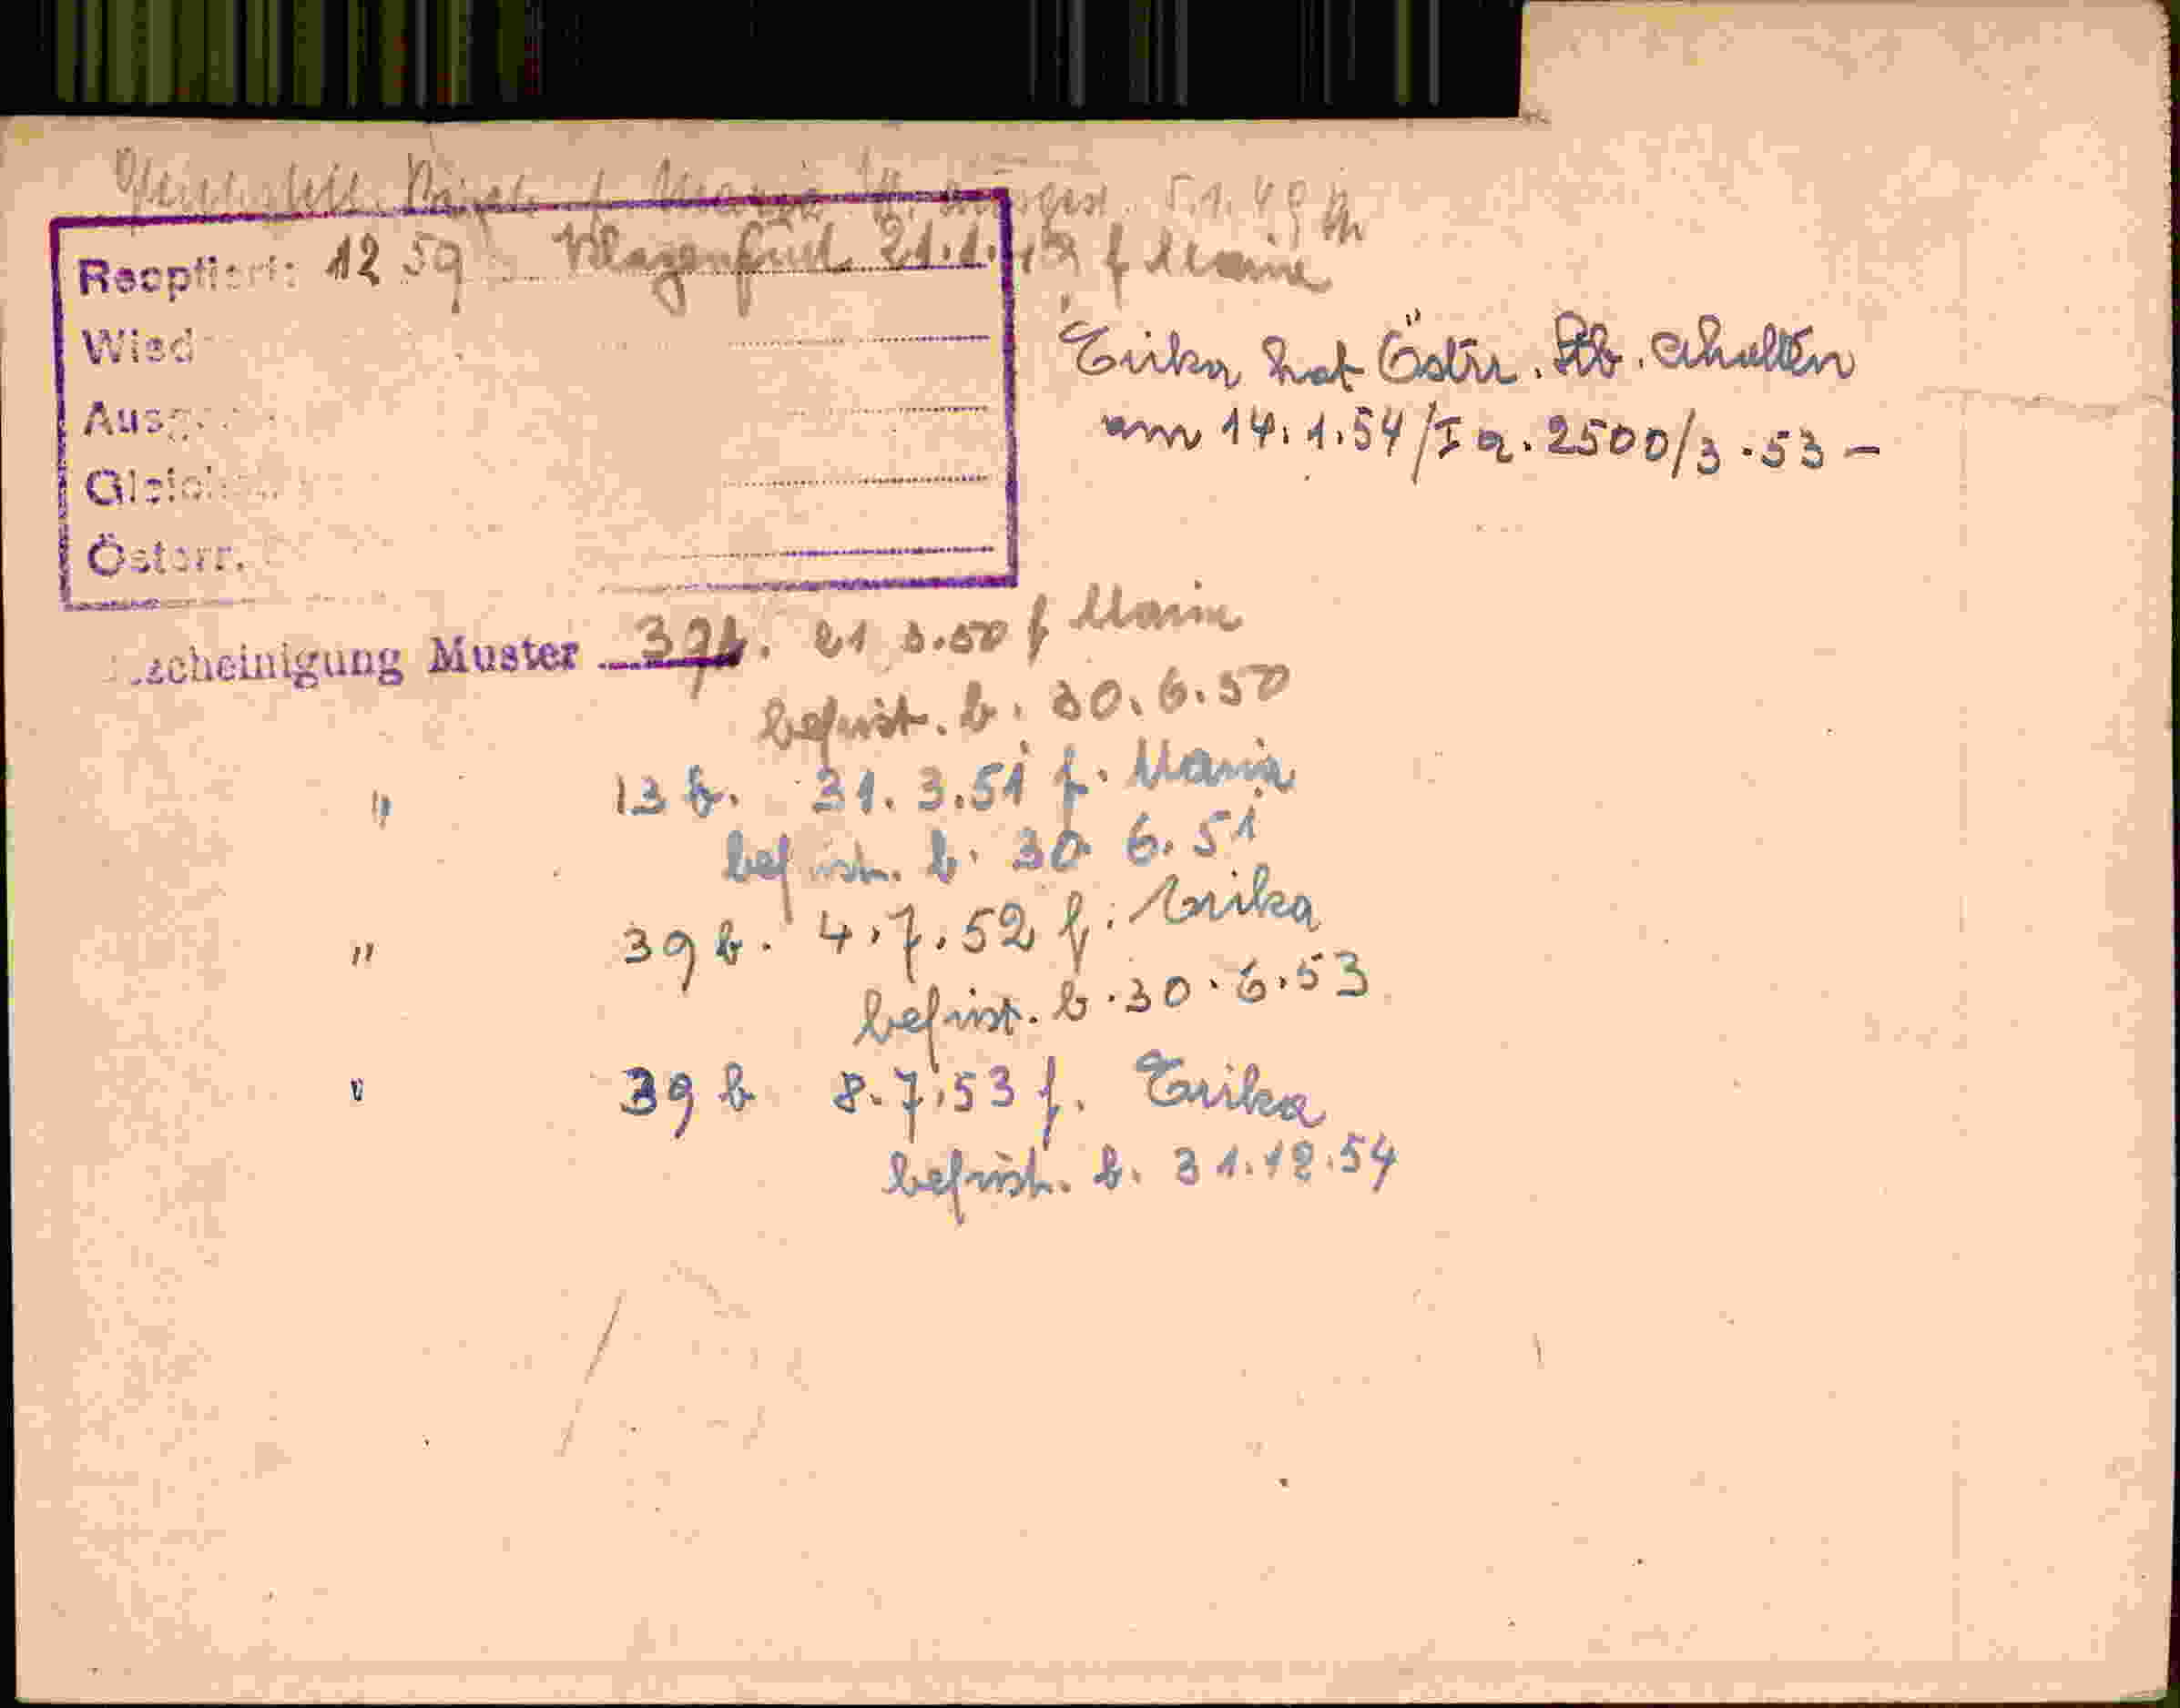 Maria 5.1.49
Reoptiert: 1259 Klagenfurt 21.1.49 f Maria
Wied
Ausg
Gleich
Österr.
Erika hat Östr. Stb. erhalten
am 14.1.54/I a. 2500/3.53 -
scheinigung Muster 39b. 21 3.50 f Maria
befrist. b. 30.6.50
" 13 b. 31.3.51 f. Maria
befrist. b. 30.6.51
" 39 b. 4.7.52 f. Erika
befrist. b. 30.6.53
" 39 b 8.7.53 f. Erika
befrist. b. 31.12.54